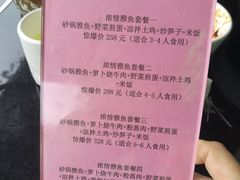 浓情雅鱼套餐一
砂锅雅鱼+野菜煎蛋+凉拌土鸡+炒笋子+米饭
惊爆价 258 元（适合 3-4 人食用）
浓情雅鱼套餐二
砂锅雅鱼+萝卜烧牛肉+野菜煎蛋+凉拌土鸡
+米饭
惊爆价 288 元（适合 4-5 人食用）
浓情雅鱼套餐三
砂锅雅鱼+萝卜烧牛肉+粉蒸肉+野菜煎蛋+
凉拌土鸡+米饭
惊爆价 328 元（适合 5-6 人食用）
浓情雅鱼套餐四
雅鱼+萝卜烧牛肉+粉蒸肉+野菜煎蛋